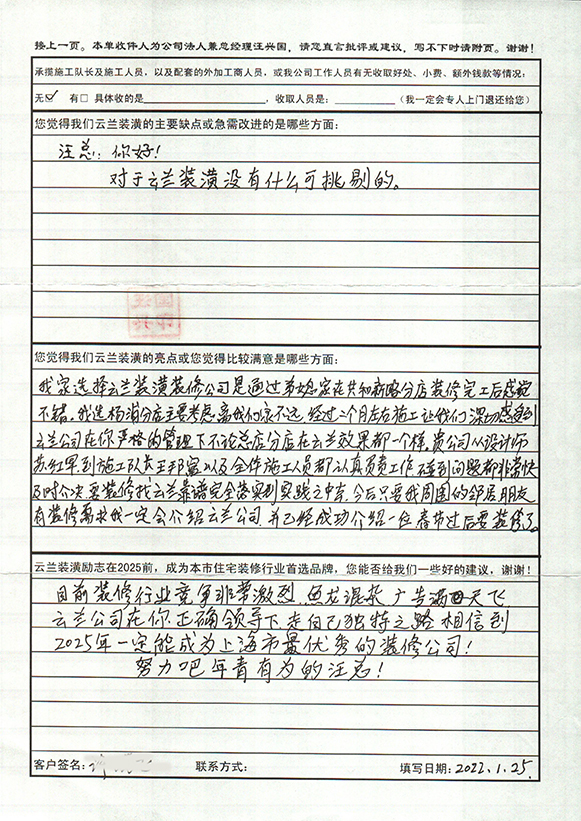 接上一页。本单收件人为公司法人兼总经理汪兴国，请您直言批评或建议，写不下时请附页。谢谢！
承揽施工队长及施工人员，以及配套的外加工商人员，或我公司工作人员有无收取好处、小费、额外钱款等情况：
无☑ 有□ 具体收的是____________________，收取人是：__________（我一定会专人上门退还给您）
您觉得我们云兰装潢的主要缺点或急需改进的是哪些方面：
汪总：你好！
对于云兰装潢没有什么可挑剔的。
您觉得我们云兰装潢的亮点或您觉得比较满意是哪些方面：
我家选择云兰装潢装修公司是通过弟媳家在共和新路分店装修完工后感觉
不错。我选杨浦分店主要考虑离我们家不远，经过二个月左右施工让我们深切感受到
云兰公司在你严格的管理下不论总店分店在云兰效果都一样。贵公司从设计师
苏红军到施工队长王邦富以及全体施工人员都认真负责工作，碰到问题都非常快
及时介决。要装修找云兰靠谱完全落实到实践之中去，今后只要我周围的邻居朋友
有装修需求我一定会介绍云兰公司，并已经成功介绍一位春节过后要装修了。
云兰装潢励志在2025前，成为本市住宅装修行业首选品牌，您能否给我们一些好的建议，谢谢！
目前装修行业竞争非常激烈，鱼龙混杂，广告满天飞
云兰公司在你正确领导下走自己独特之路相信到
2025年一定能成为上海市最优秀的装修公司！
努力吧年青有为的汪总！
客户签名： 联系方式： 填写日期：2022.1.25